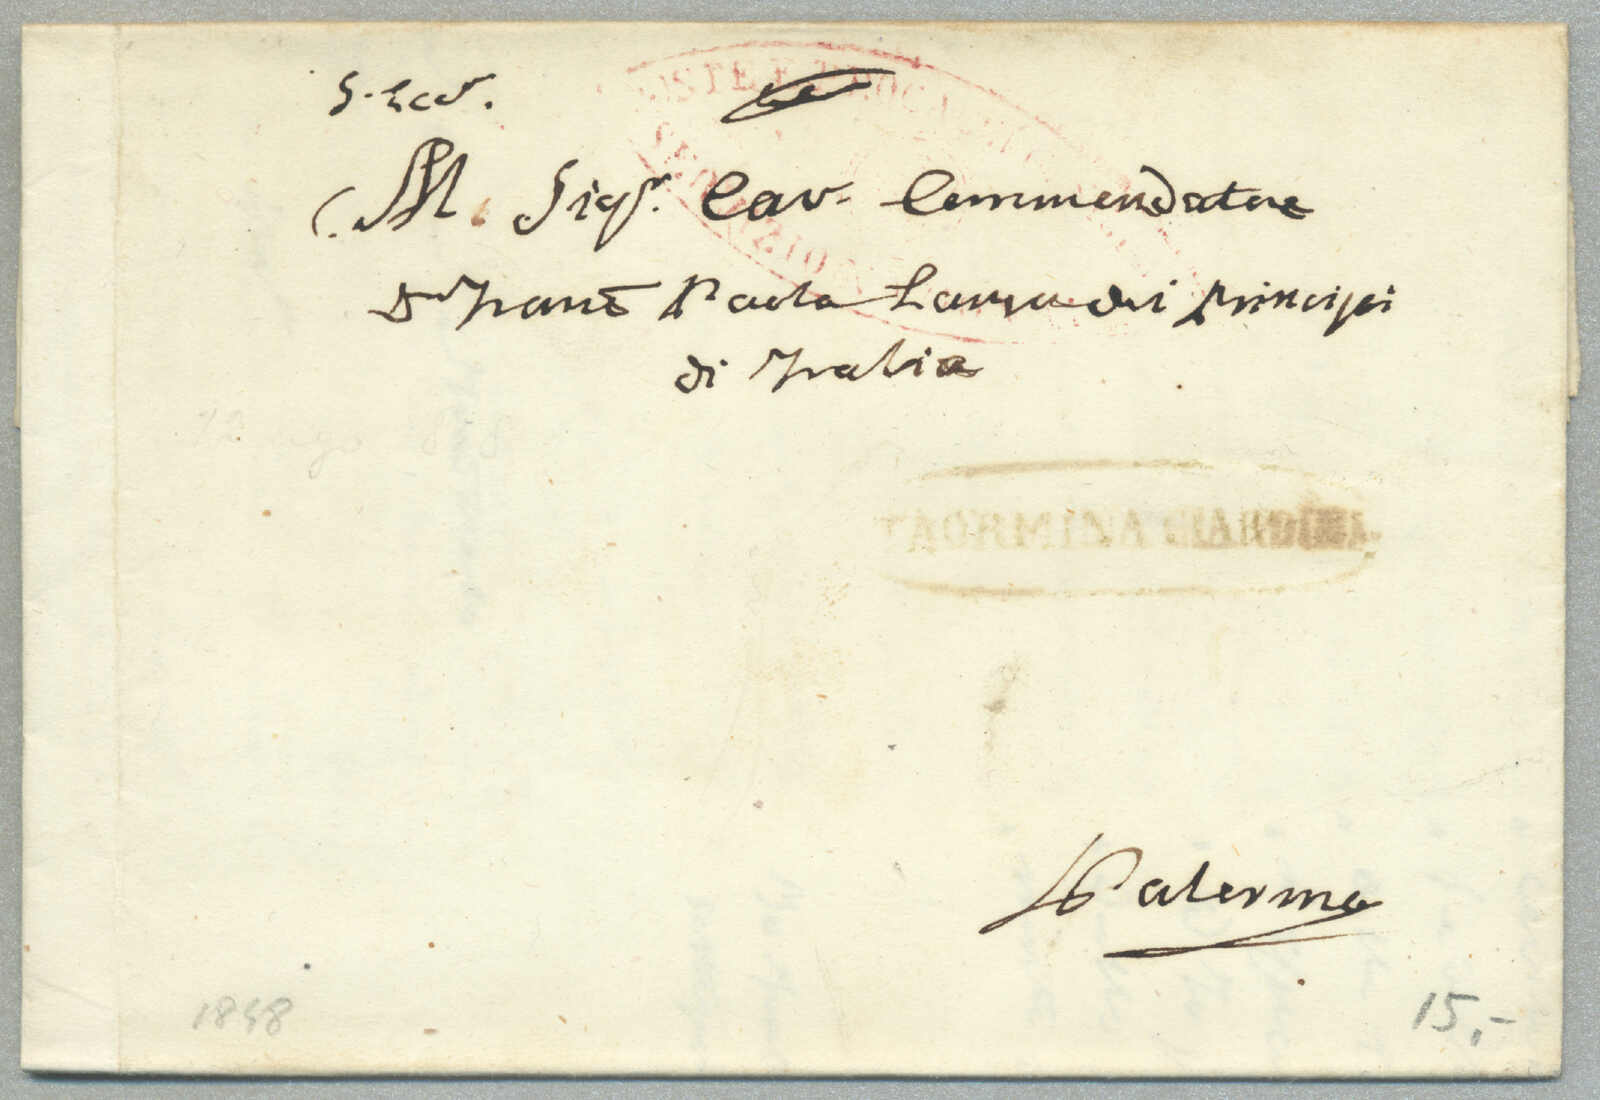 S. Ecc.
M. Sigr. Cav. Commendatore
Dn Franc Paola Lanza dei Principi
di Trabia
TAORMINA GIARDINI
Palermo
1848
15,-